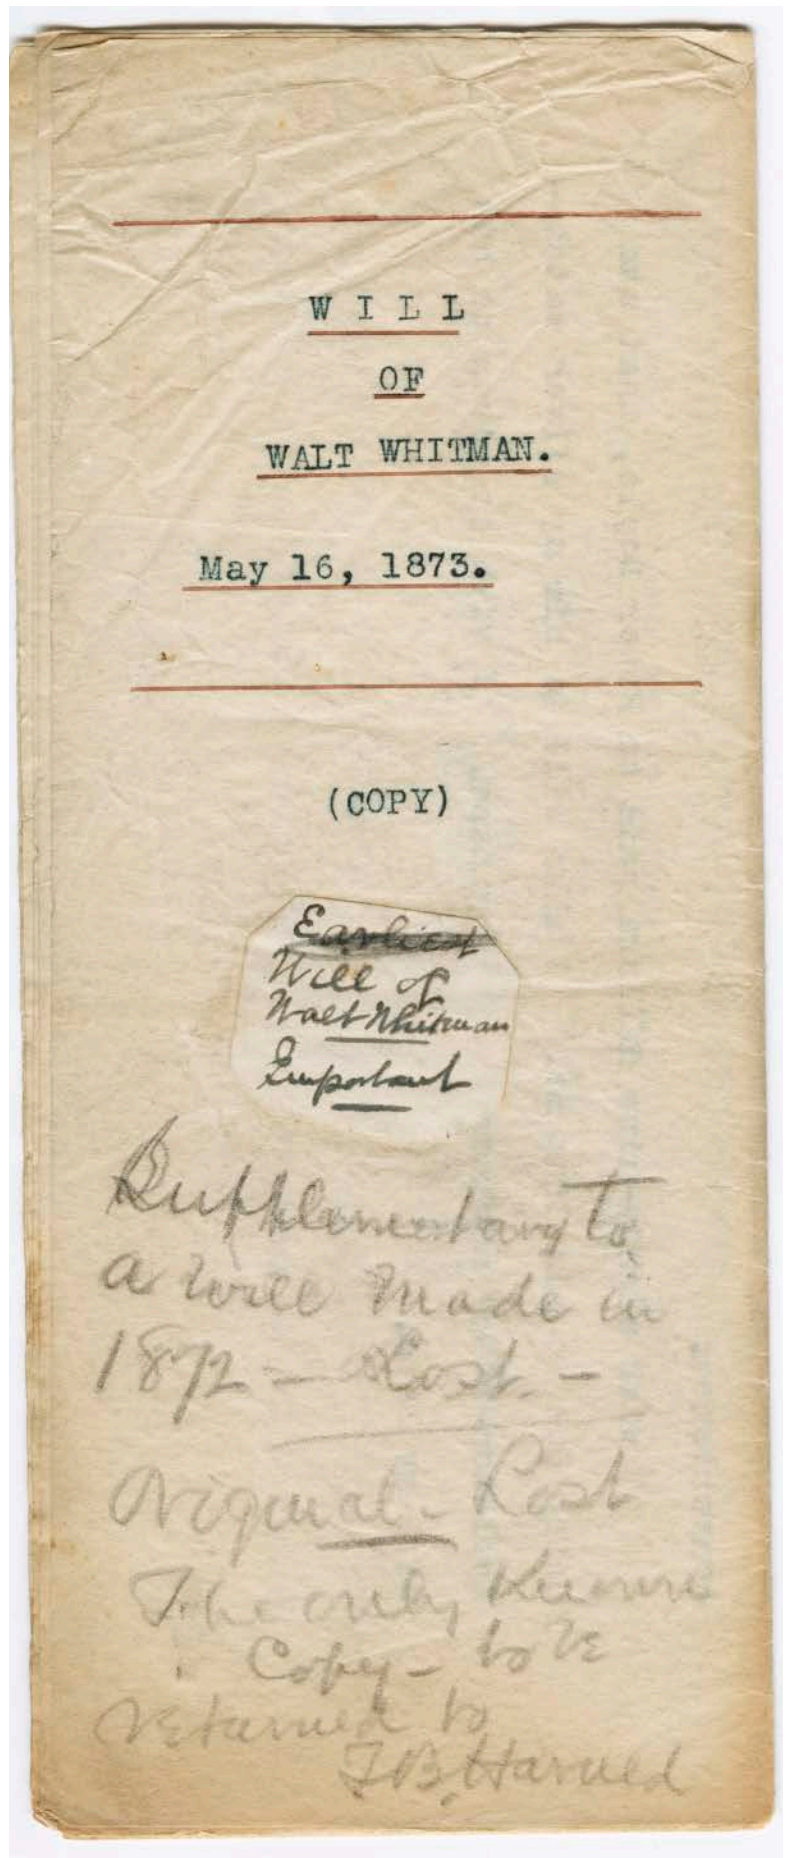 WILL
OF
WALT WHITMAN.
May 16, 1873.
(COPY)
Earliest
Will of
Walt Whitman
Important
Supplementary to
a will made in
1872 — Lost. —
Original - Lost
The only known
Copy - to be
returned to
T.B. Harned